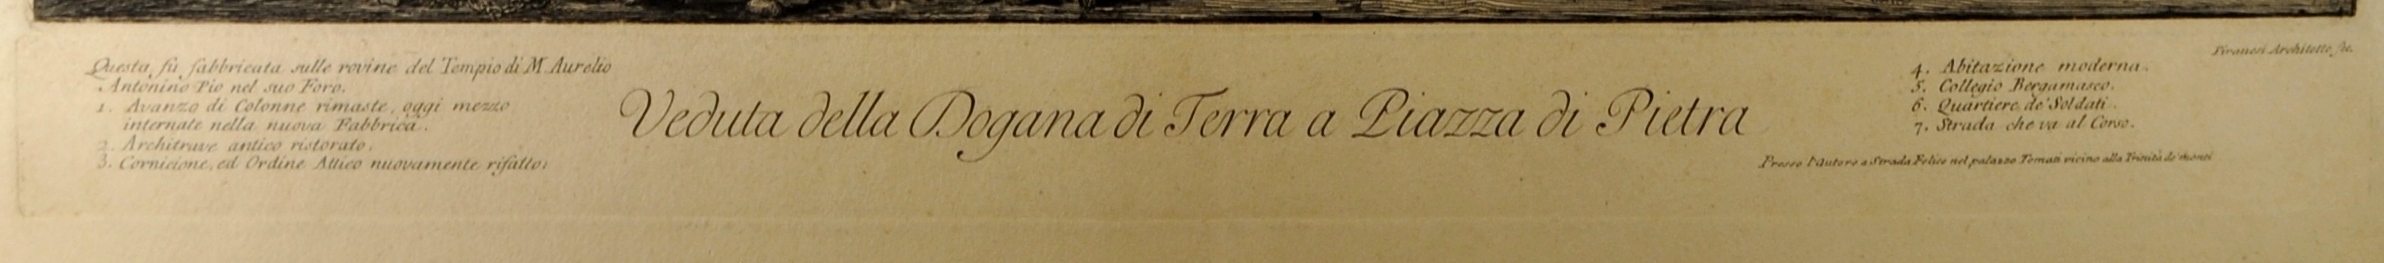 Questa fù fabbricata sulle rovine del Tempio di M. Aurelio
Antonino Pio nel suo Foro.
1. Avanzo di Colonne rimaste, oggi mezzo
internate nella nuova Fabbrica.
2. Architrave antico ristorato.
3. Cornicione, ed Ordine Attico nuovamente rifatto.
Veduta della Dogana di Terra a Piazza di Pietra
Piranesi Architetto fec.
4. Abitazione moderna.
5. Collegio Bergamasco.
6. Quartiere de' Soldati.
7. Strada che va al Corso.
Presso l'autore a Strada Felice nel palazzo Tomati vicino alla Trinità de' monti